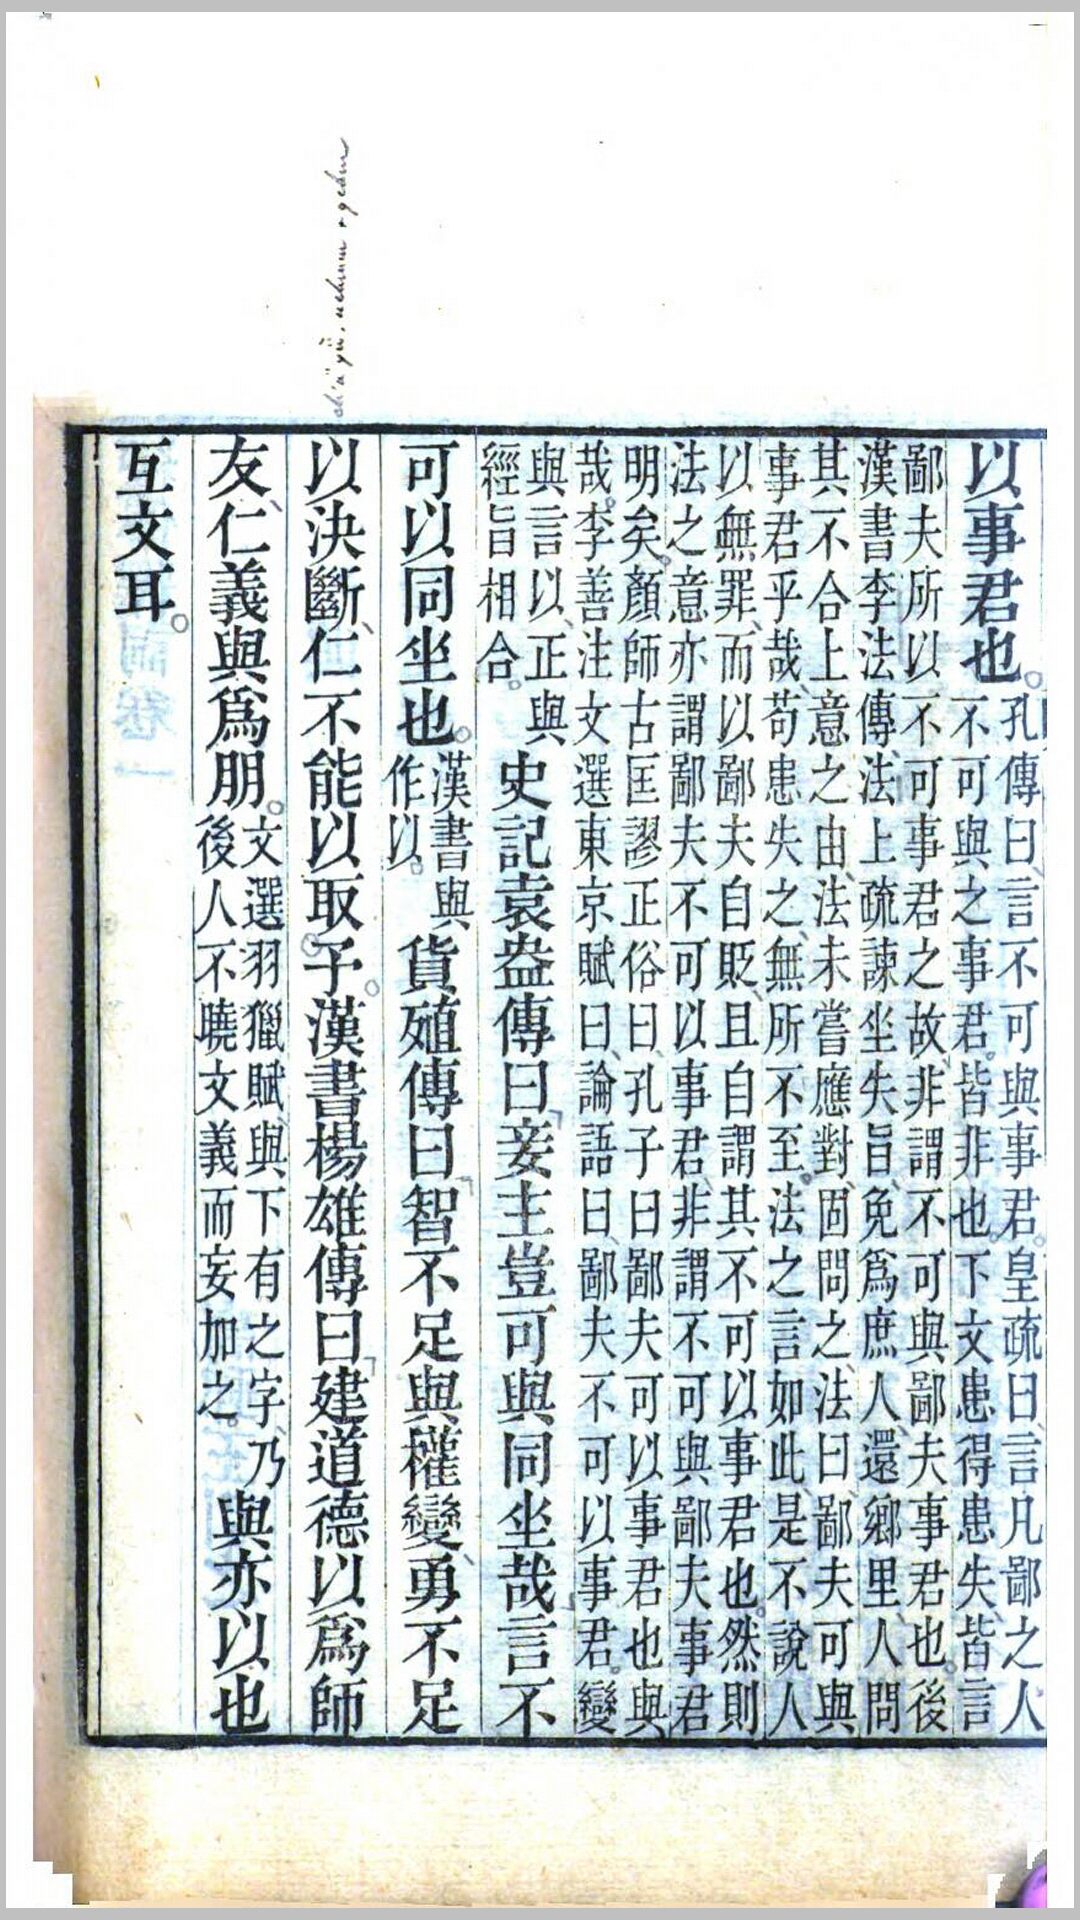 ch'ü yü, nehmen + geben
以事君也。
孔傳曰、言不可與事君。皇疏曰、言凡鄙之人
不可與之事君。皆非也。下文患得患失、皆言
鄙夫所以不可事君之故、非謂不可與鄙夫事君也。後
漢書李法傳、法上疏諫坐失旨、免爲庶人、還鄉里、人問
其不合上意之由、法未嘗應對、固問之、法曰、鄙夫可與
事君乎哉、苟患失之、無所不至。法之言如此、是不說人
以無罪、而以鄙夫自貶、且自謂其不可以事君也。然則
法之意亦謂鄙夫不可以事君、非謂不可與鄙夫事君
明矣。顏師古匡謬正俗曰、孔子曰鄙夫可以事君也與
哉。李善注文選東京賦曰、論語曰、鄙夫不可以事君。變
與言以、正與
經旨相合。
史記袁盎傳曰「妾主豈可與同坐哉」言不
可以同坐也。
漢書與
作以。
貨殖傳曰「智不足與權變、勇不足
以決斷、仁不能以取予。漢書楊雄傳曰「建道德以爲師
友、仁義與爲朋。
文選羽獵賦、與下有之字、乃
後人不曉文義而妄加之。
與亦以也
互文耳。